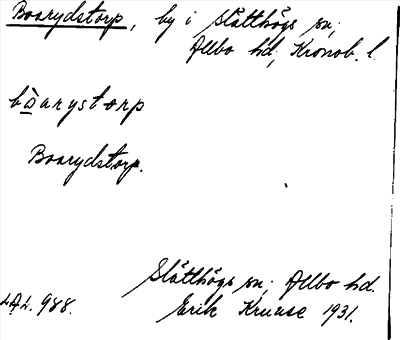 Boarydstorp, by i Slätthögs sn;
Allbo hd; Kronob. l.
bòarystorp
Boarydstorp.
Slätthögs sn; Allbo hd.
LAL. 988. Erik Kruuse 1931.